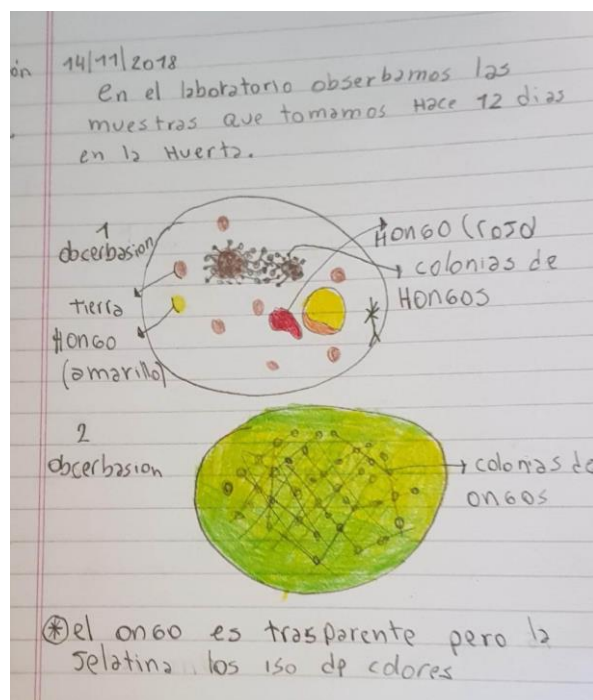 ón
14/11/2018
en el laboratorio obserbamos las
muestras que tomamos Hace 12 dias
en la Huerta.
1
obcerbasion
tierra
HONGO
(amarillo)
HONGO (rojo)
colonias de
HONGOS
2
obcerbasion
colonias de
ONGOS
*el ongo es trasparente pero la
jelatina los iso de colores